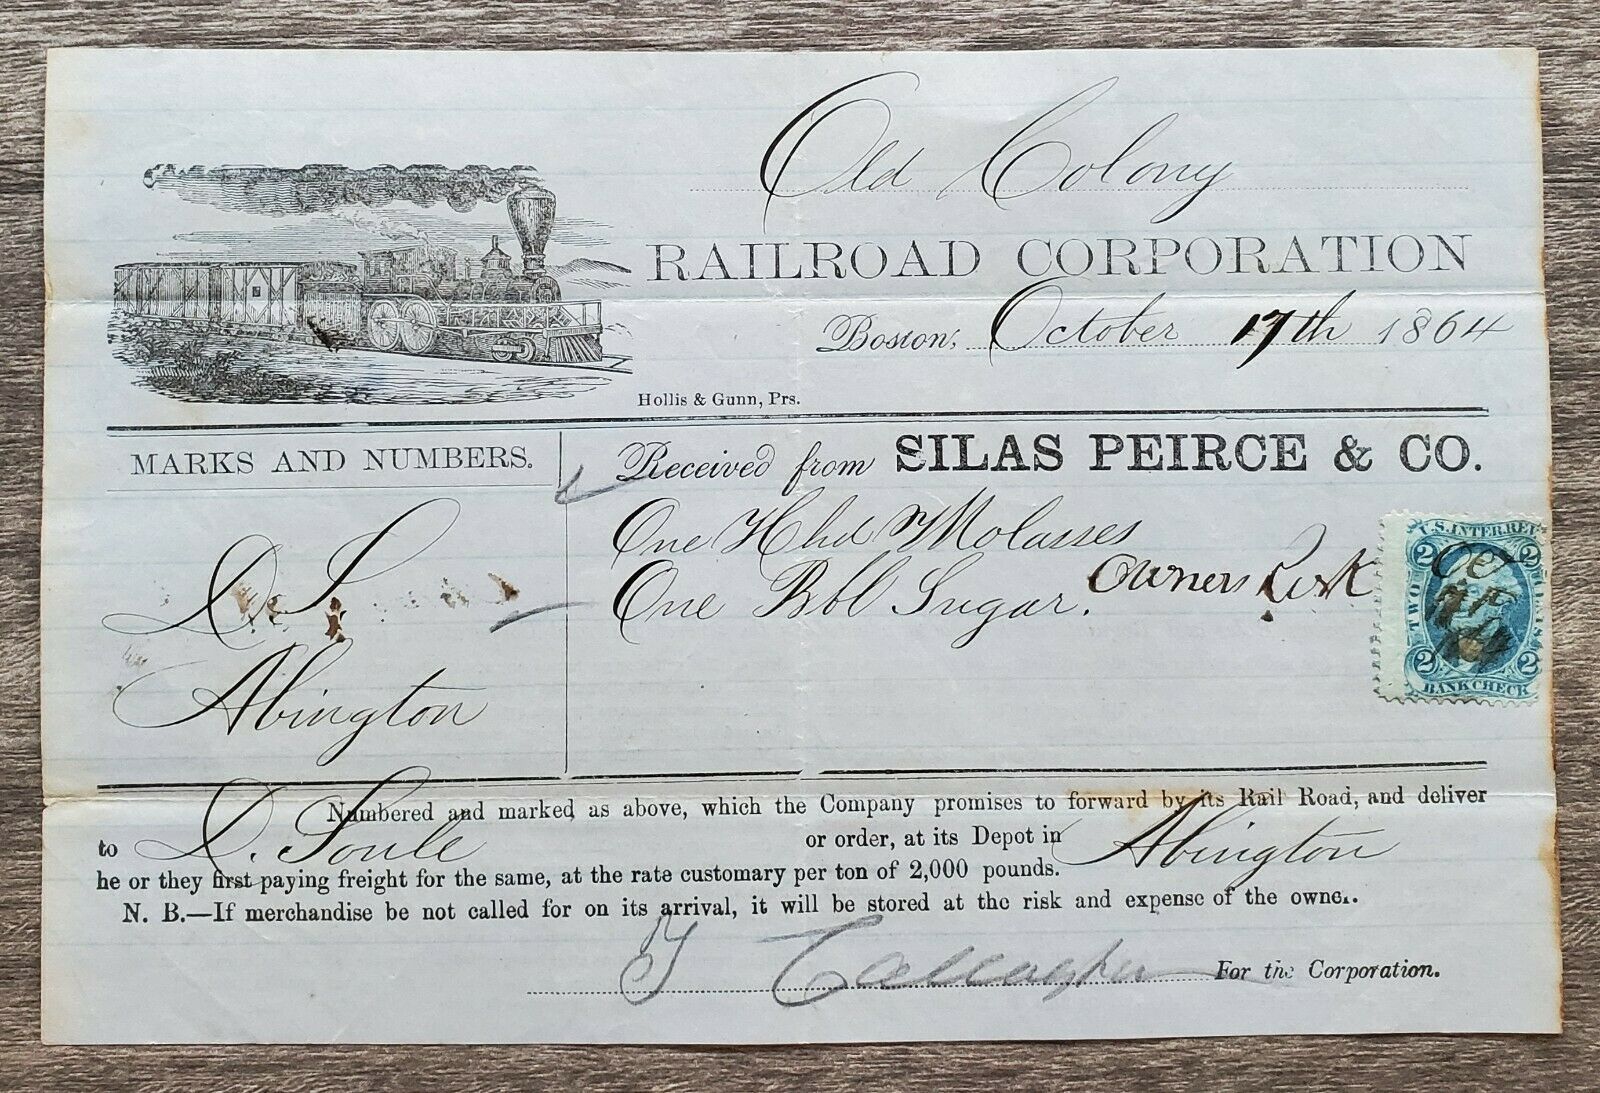 Old Colony
RAILROAD CORPORATION
Boston, October 17th 1864
Hollis & Gunn, Prs.
MARKS AND NUMBERS.
Received from SILAS PEIRCE & CO.
D. S.
Abington
One Hhd Molasses
One Bbl Sugar.
Owners Risk
U.S. INTER. REV.
2 2
TWO
2 2
BANK CHECK
Numbered and marked as above, which the Company promises to forward by its Rail Road, and deliver
to D. Soule or order, at its Depot in Abington
he or they first paying freight for the same, at the rate customary per ton of 2,000 pounds.
N. B.—If merchandise be not called for on its arrival, it will be stored at the risk and expense of the owner.
Callagher For the Corporation.